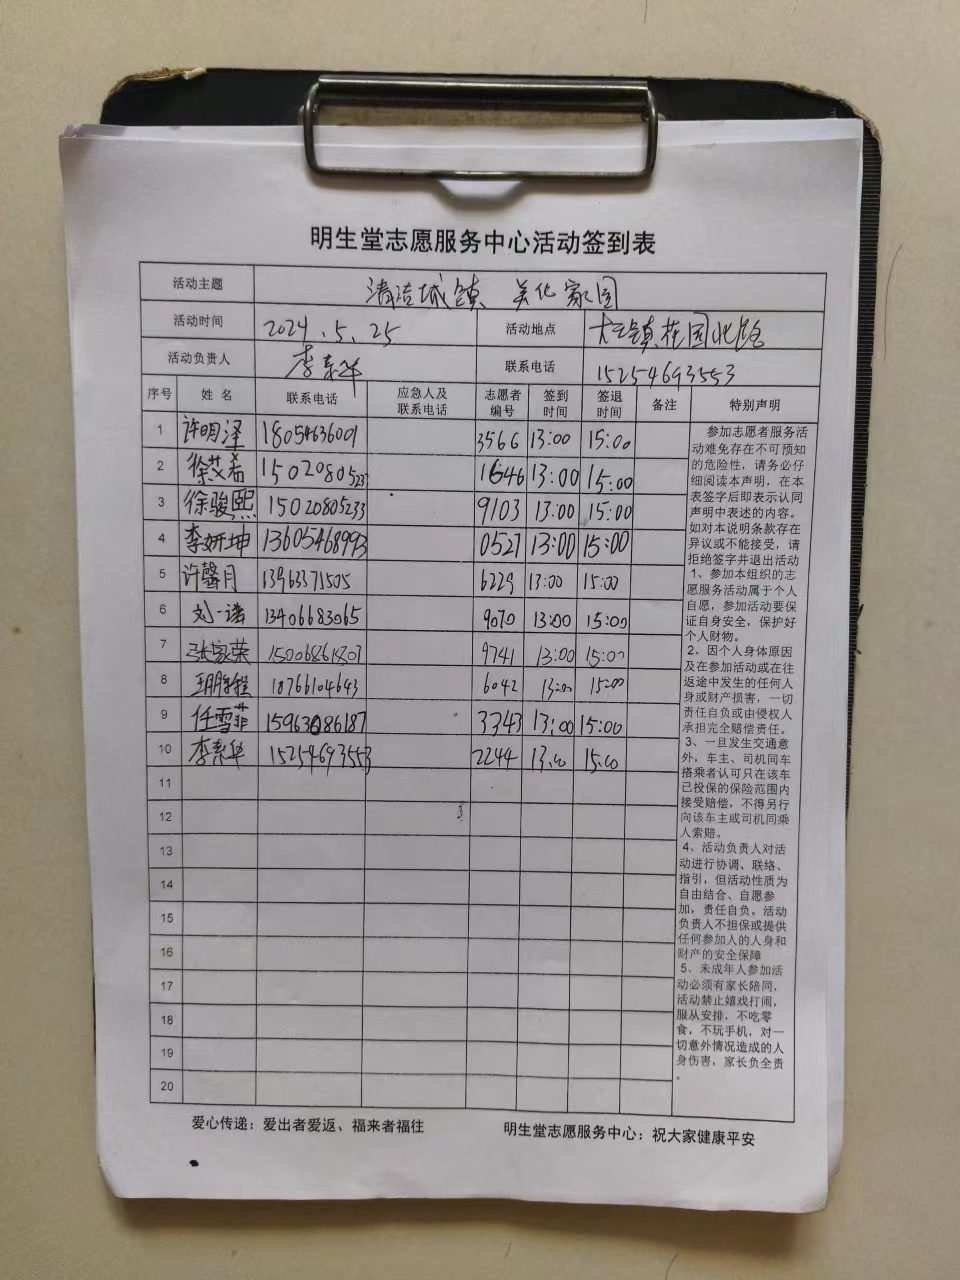 明生堂志愿服务中心活动签到表
活动主题 清洁城镇 美化家园
活动时间 2024.5.25 活动地点 大王镇花园北路
活动负责人 李素华 联系电话 15254693553
序号 姓名 联系电话 应急人及联系电话 志愿者编号 签到时间 签退时间 备注 特别声明
1 许明泽 18054636001 3566 13:00 15:00
2 徐艾希 15020805233 1646 13:00 15:00
3 徐骏熙 15020805233 9103 13:00 15:00
4 李妍坤 13605468993 0527 13:00 15:00
5 许馨月 13963371505 6229 13:00 15:00
6 刘一诺 13406683065 9070 13:00 15:00
7 张家荣 15006861807 9741 13:00 15:00
8 18766104643 6042 13:00 15:00
9 任雪菲 15963086187 3343 13:00 15:00
10 李素华 15254693553 2244 13:00 15:00
11
12
13
14
15
16
17
18
19
20
参加志愿者服务活
动难免存在不可预知
的危险性，请务必仔
细阅读本声明，在本
表签字后即表示认同
声明中表述的内容。
如对本说明条款存在
异议或不能接受，请
拒绝签字并退出活动
1、参加本组织的志
愿服务活动属于个人
自愿，参加活动要保
证自身安全，保护好
个人财物。
2、因个人身体原因
及在参加活动或在往
返途中发生的任何人
身或财产损害，一切
责任自负或由侵权人
承担完全赔偿责任。
3、一旦发生交通意
外，车主、司机同车
搭乘者认可只在该车
已投保的保险范围内
接受赔偿，不得另行
向该车主或司机同乘
人索赔。
4、活动负责人对活
动进行协调、联络、
指引，但活动性质为
自由结合、自愿参
加，责任自负。活动
负责人不担保或提供
任何参加人的人身和
财产的安全保障
5、未成年人参加活
动必须有家长陪同，
活动禁止嬉戏打闹，
服从安排，不吃零
食，不玩手机，对一
切意外情况造成的人
身伤害，家长负全责
。
爱心传递：爱出者爱返、福来者福往 明生堂志愿服务中心：祝大家健康平安